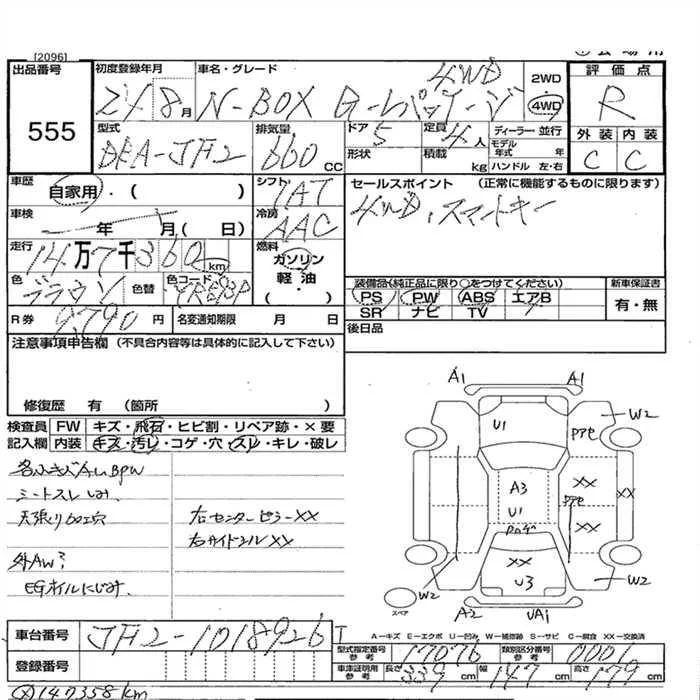 [2096]
出品番号 初度登録年月 車名・グレード 2WD 評価点
555 24 8月 N-BOX G-Lパッケージ 4WD 4WD R
型式 排気量 ドア 定員 ディーラー・並行 外装 内装
DBA-JF2 660 CC 5 4人 モデル年式 年 C C
形状 積載 kg ハンドル 左・右
車歴 自家用・( ) シフト IAT セールスポイント (正常に機能するものに限ります)
車検 年 月( 日) 冷房 AAC 4WD、スマートキー
走行 14万7千360km 燃料 ガソリン
軽油・( )
色 ブラウン 色替 色コード
装備品(純正品に限り○をつけてください) 新車保証書
PS PW ABS エアB 有・無
SR ナビ TV
R券 9,790円 名変通知期限 月 日 後日品
注意事項申告欄 (不具合内容等は具体的に記入して下さい)
修復歴 有 (箇所 )
検査員 FW キズ・飛石・ヒビ割・リペア跡・×要
記入欄 内装 キズ・汚レ・コゲ・穴・スレ・キレ・破レ
シートスレ しみ
天張り60工穴 右センターピラーXX
右サイドシルXX
外AW
EGオイルにじみ
A1 A1
U1 W2
ピアセ
XX
A3
U1
ピアセ XX
XX
XX
U3
W2 W2
スペア
A2 UA1
A−キズ E−エクボ U−凹み W−補修跡 S−サビ C−腐食 XX−交換済
車台番号 JF2-1018926
型式指定番号 参考 17076 類別区分番号 参考 0001
登録番号
車庫証明用 参考 長さ 339cm 幅 147cm 高さ 179cm
147358km